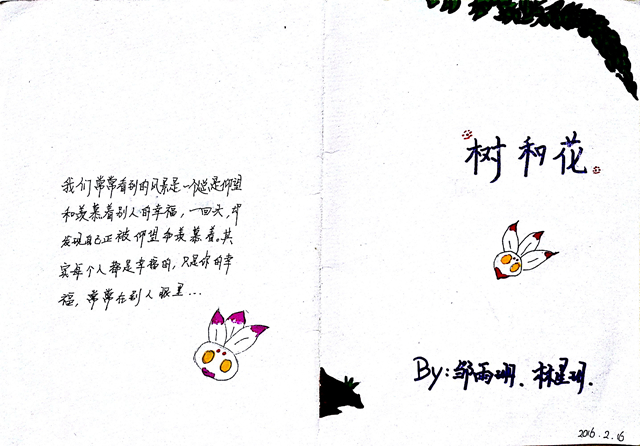 我们常常看到的风景是一个总是仰望
和羡慕着别人的幸福，一回头，却
发现自己正被仰望和羡慕着。其
实每个人都是幸福的，只是你的幸
福，常常在别人眼里...
树和花
By:邹雨珊、林星玥.
2016.2.16